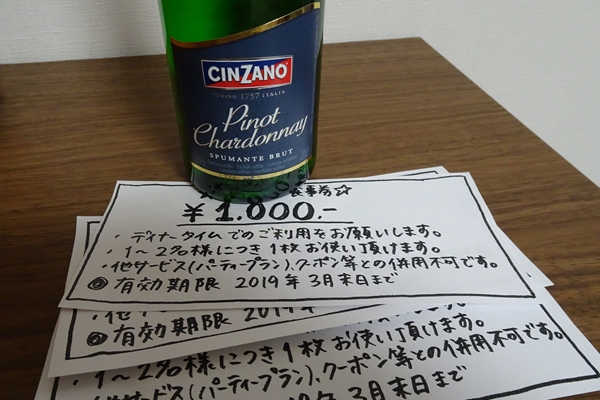 CINZANO
TORINO 1757 ITALIA
Pinot
Chardonnay
SPUMANTE BRUT
食事券☆
¥1.000.-
・ディナータイムでのご利用をお願いします。
・1〜2名様につき1枚お使い頂けます。
・他サービス(パーティープラン)、クーポン等との併用不可です。
◎有効期限 2019年3月末日まで
◎有効期限 2019年3月末日まで
・1〜2名様につき1枚お使い頂けます。
他サービス(パーティープラン)、クーポン等との併用不可です。
19年3月末日まで